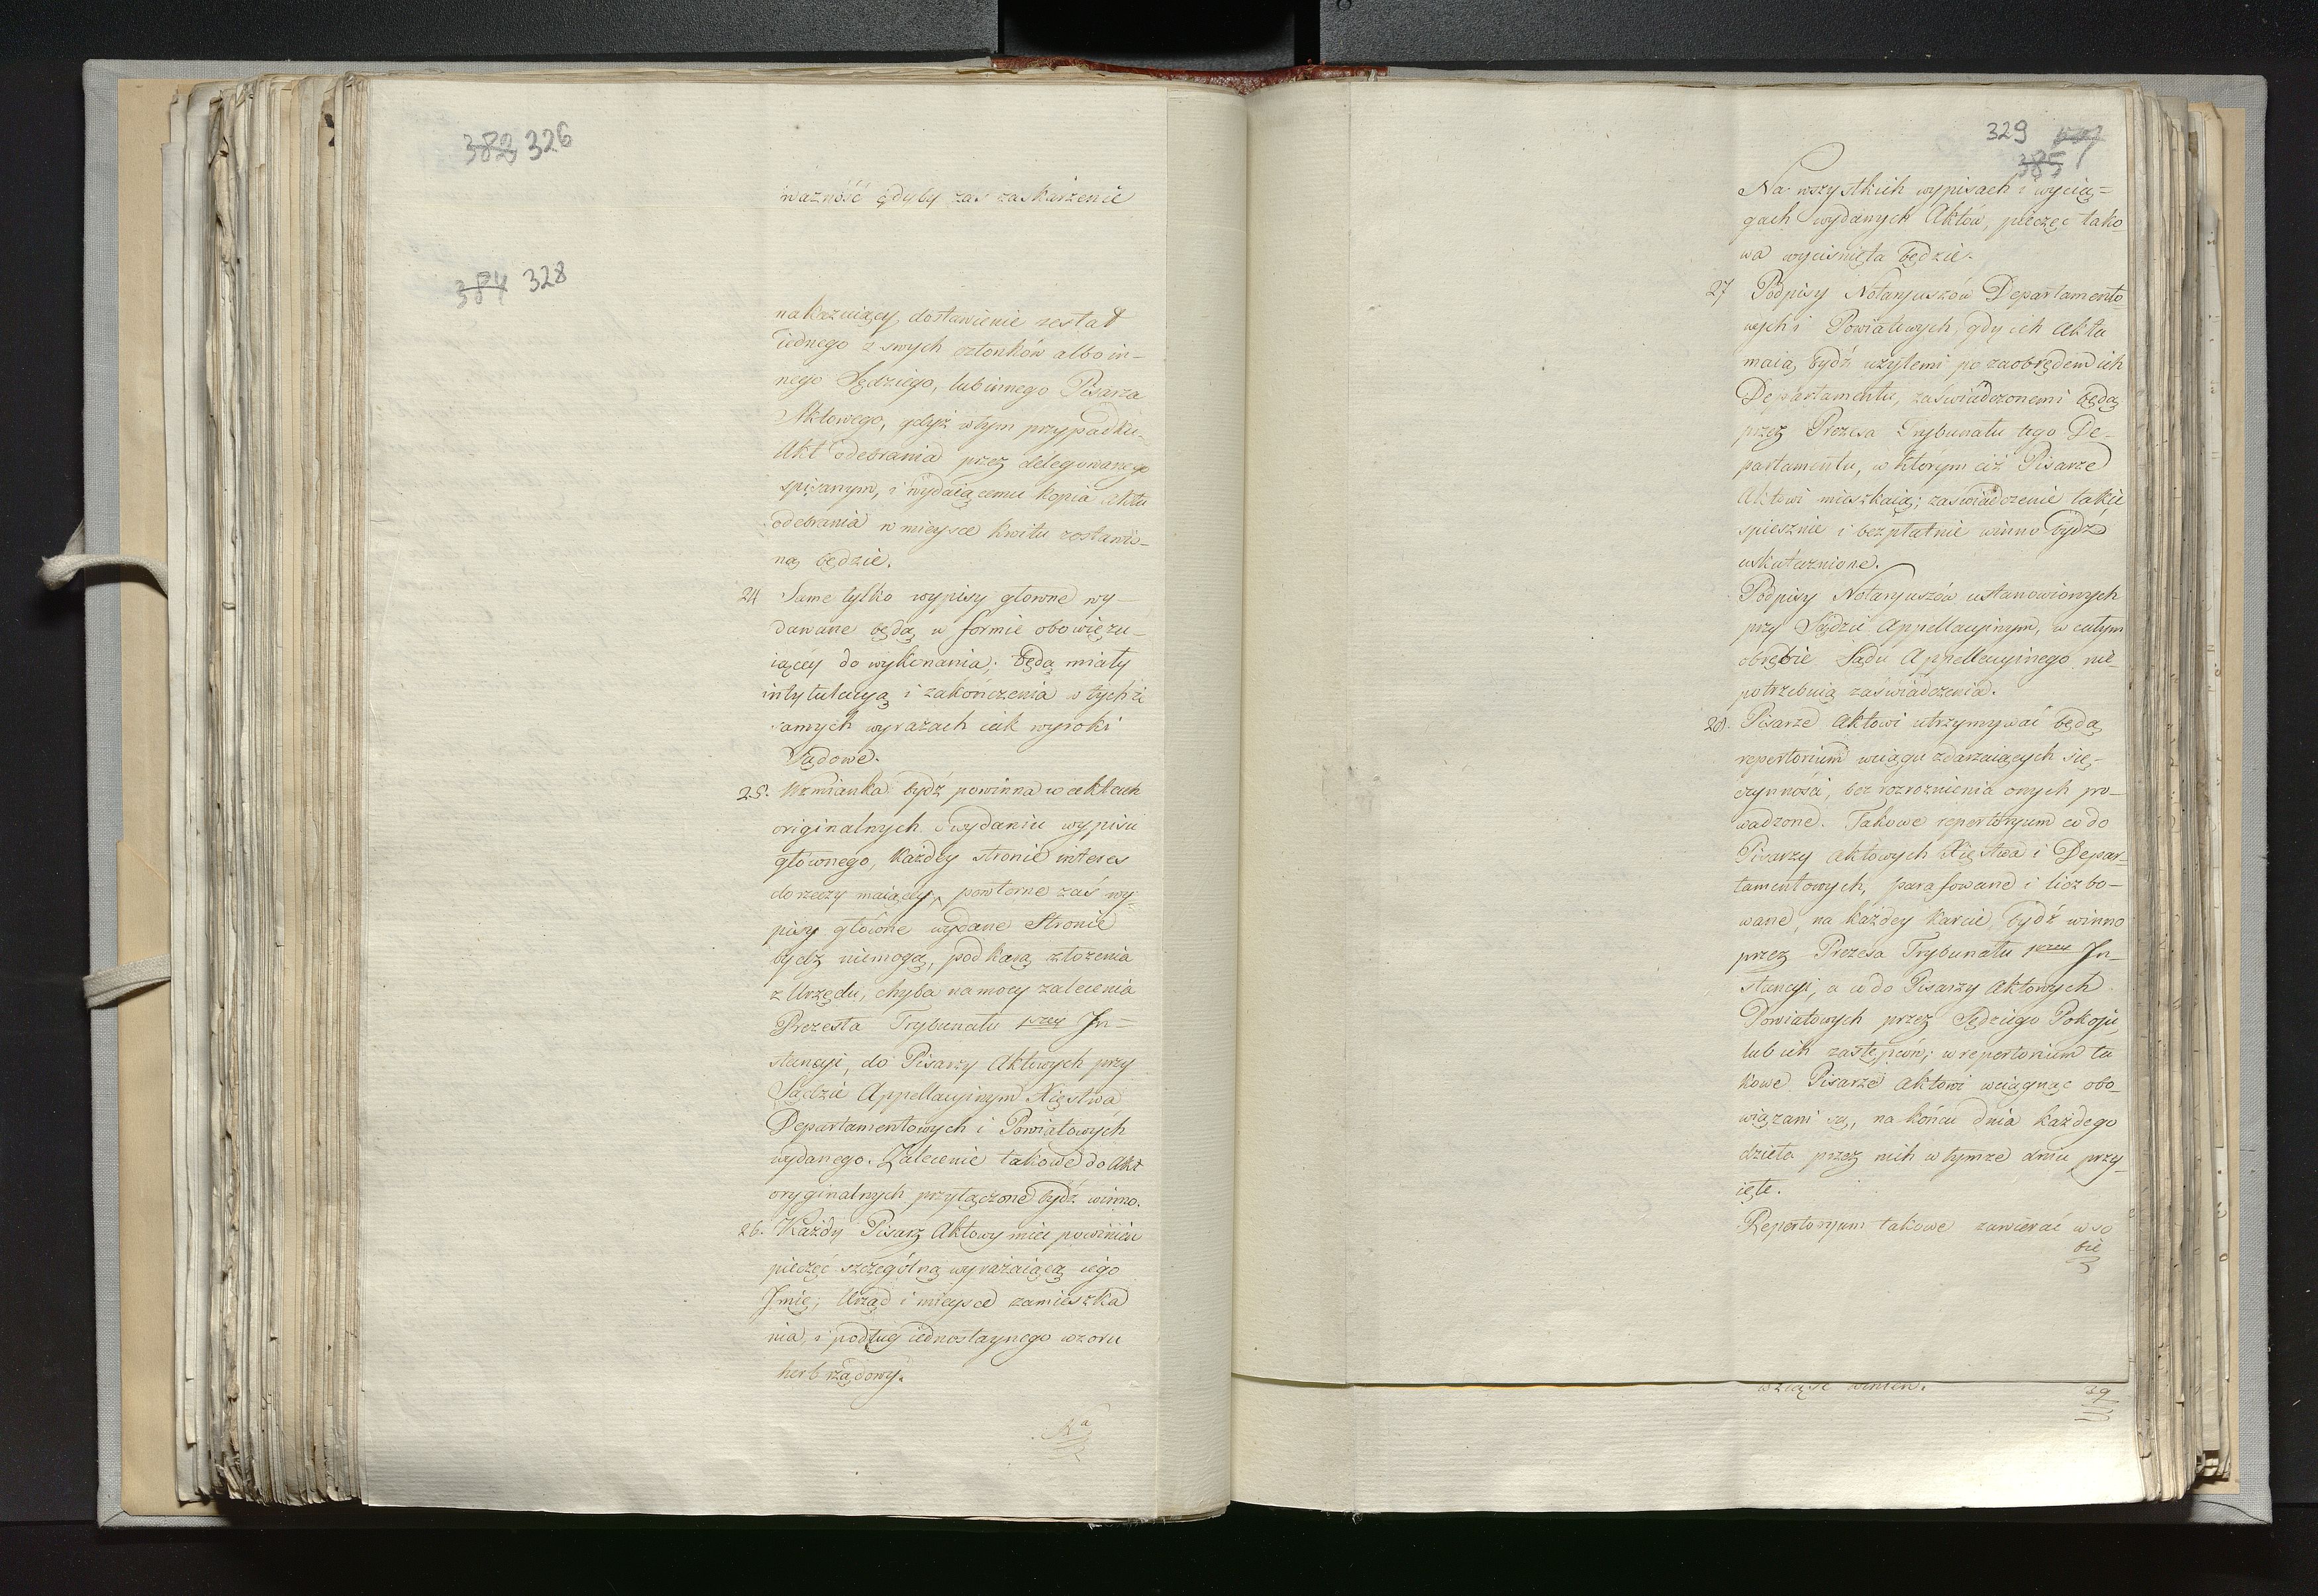 382 326
ważność gdyby zas zaskarżenie
384 328
nakazuiący dostawienie zestał
iednego z swych członków albo in-
nego Sędziego, lub innego Pisarza
Aktowego, gdyż w tym przypadku
Akt odebrania przez delegowanego
spisanym, i wydaiącemu kopia aktu
odebrania w mieysce kwitu zostawio-
ną będzie.
24 Same tylko wypisy głowne wy-
dawane będą w formie obowięzu-
iącéy do wykonania; będą miały
intytulacyą i zakończenia o tychże
samych wyrazach iak wyroki
Sądowe.
25. Wzmianka bydź powinna w aktach
originalnych o wydaniu wypisu
głównego, każdey stronie interes
do rzeczy maiącey, powtorne zaś wy-
pisy główne wydane Stronie
bydz niemogą, pod karą złożenia
z Urzędu, chyba na mocy zalecenia
Prezesa Trybunału 1szey In=
stancyi, do Pisarzy Aktowych przy
Sądzie Appellacyinym Xięstwa
Departamentowych i Powiatowych
wydanego. Zalecenie takowe do Akt
oryginalnych przyłączone bydź winno.
26. Każdy Pisarz Aktowy mieć powinien
pieczęć szczególną wyrażaiącą iego
Imię, Urząd i mieysce zamieszka
nia, i podług iednostaynego wzoru
herb rządowy.
Na
329
385
Na wszystkich wypisach i wycią=
gach wydanych Aktów, pieczęć tako-
wa wyciśnięta będzie.
27 Podpisy Notaryuszów Departamento
wych i Powiatowych, gdy ich Akta
maią bydź użytemi po za obrębem ich
Departamentu, zaświadczonemi będą
przez Prezesa Trybunału tego De-
partamentu, w którym ciż Pisarze
Aktowi mieszkaią; zaświadczenie takie
spiesznie i bezpłatnie winno bydź
uskutecznione.
Podpisy Notaryuszów ustanowionych
przy Sądzie Appellacyinym, w całym
obrębie Sądu Appellacyinego nie-
potrzebuią zaświadczenia.
28. Pisarze Aktowi utrzymywać będą
repertorium wciągu zdarzaiących się
czynności, bez rozroznienia onych pro-
wadzone. Takowe repertoryum co do
Pisarzy Aktowych Xięstwa i Depar-
tamentowych, parafowane i liczbo-
wane, na każdey karcie, bydź winno
przez Prezesa Trybunału 1szey In-
stancyi, a co do Pisarzy Aktowych
Powiatowych przez Sędziego Pokoju
lub ich zastępców; w repertorium ta
kowe Pisarze Aktowi wciągnąć obo-
wiązani są, na końcu dnia każdego
dzieła przez nich w tymże dniu przy-
ięte.
Repertoryum takowe zawierać w so
bie
wziąść winien.
29